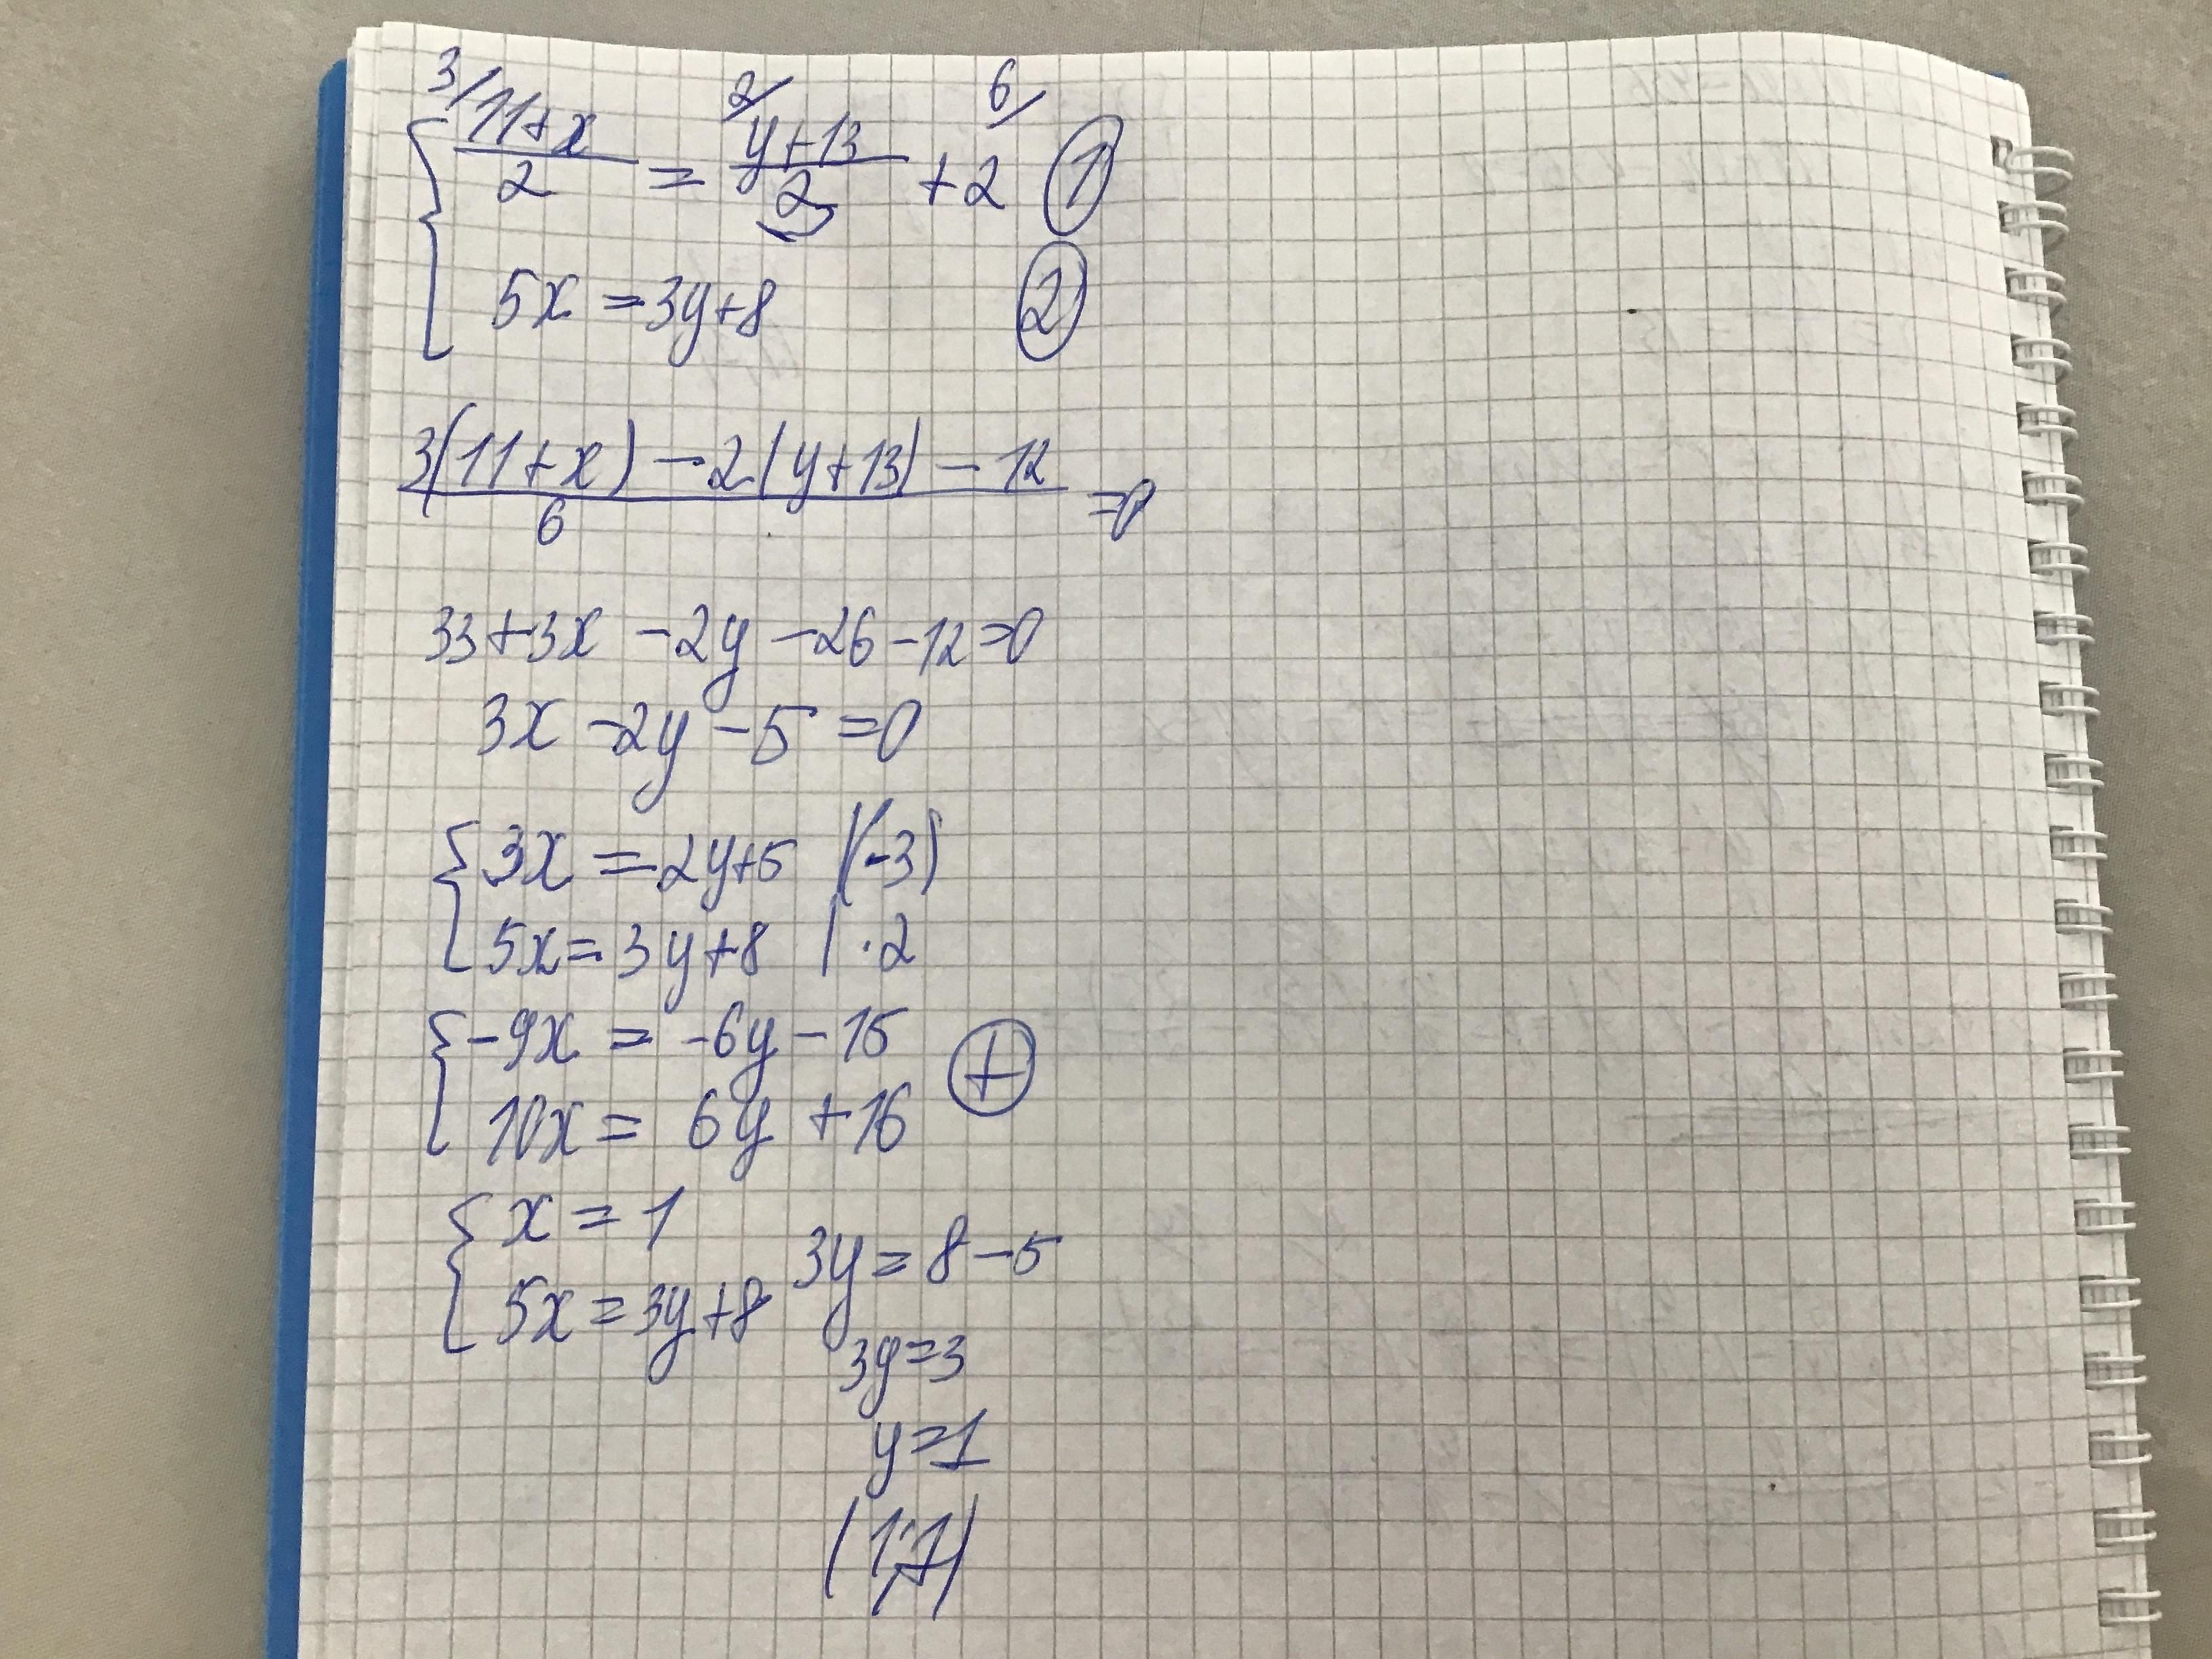 3/ 2/ 6/
{ (11+x)/2 = (y+13)/2 + 2 ①
5x = 3y+8 ②
(3(11+x) - 2(y+13) - 12)/6 = 0
33+3x - 2y - 26 - 12 = 0
3x - 2y - 5 = 0
{ 3x = 2y+5 |(-3)
5x = 3y+8 | ·2
{ -9x = -6y - 15 ⊕
10x = 6y + 16
{ x = 1
5x = 3y+8
3y = 8 - 5
3y = 3
y = 1
(1;1)